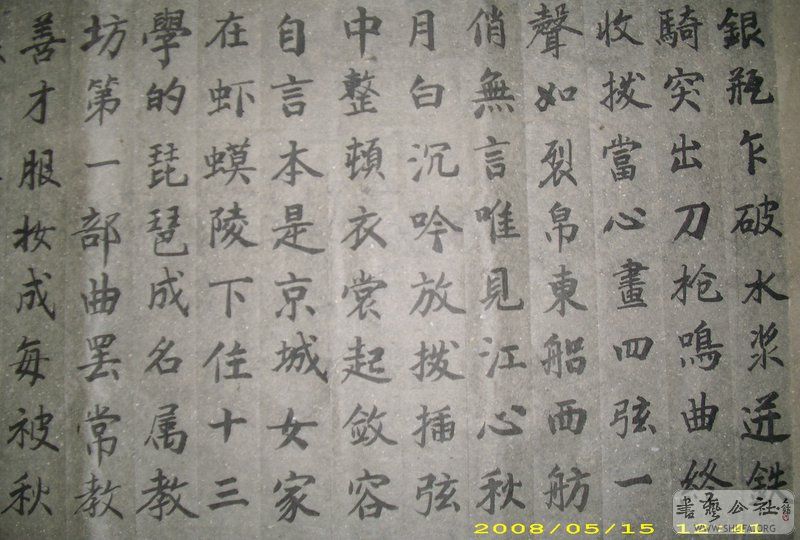 銀瓶乍破水浆迸
騎突出刀枪鳴曲終
收拨當心畫四弦一
聲如裂帛東船西舫
俏無言唯見江心秋
月白沉吟放拨插弦
中整頓衣裳起敛容
自言本是京城女家
在虾蟆陵下住十三
學的琵琶成名属教
坊第一部曲罢常教
善才服妆成每被秋
書藝公社
WWW.SHUFA.ORG
2008/05/15